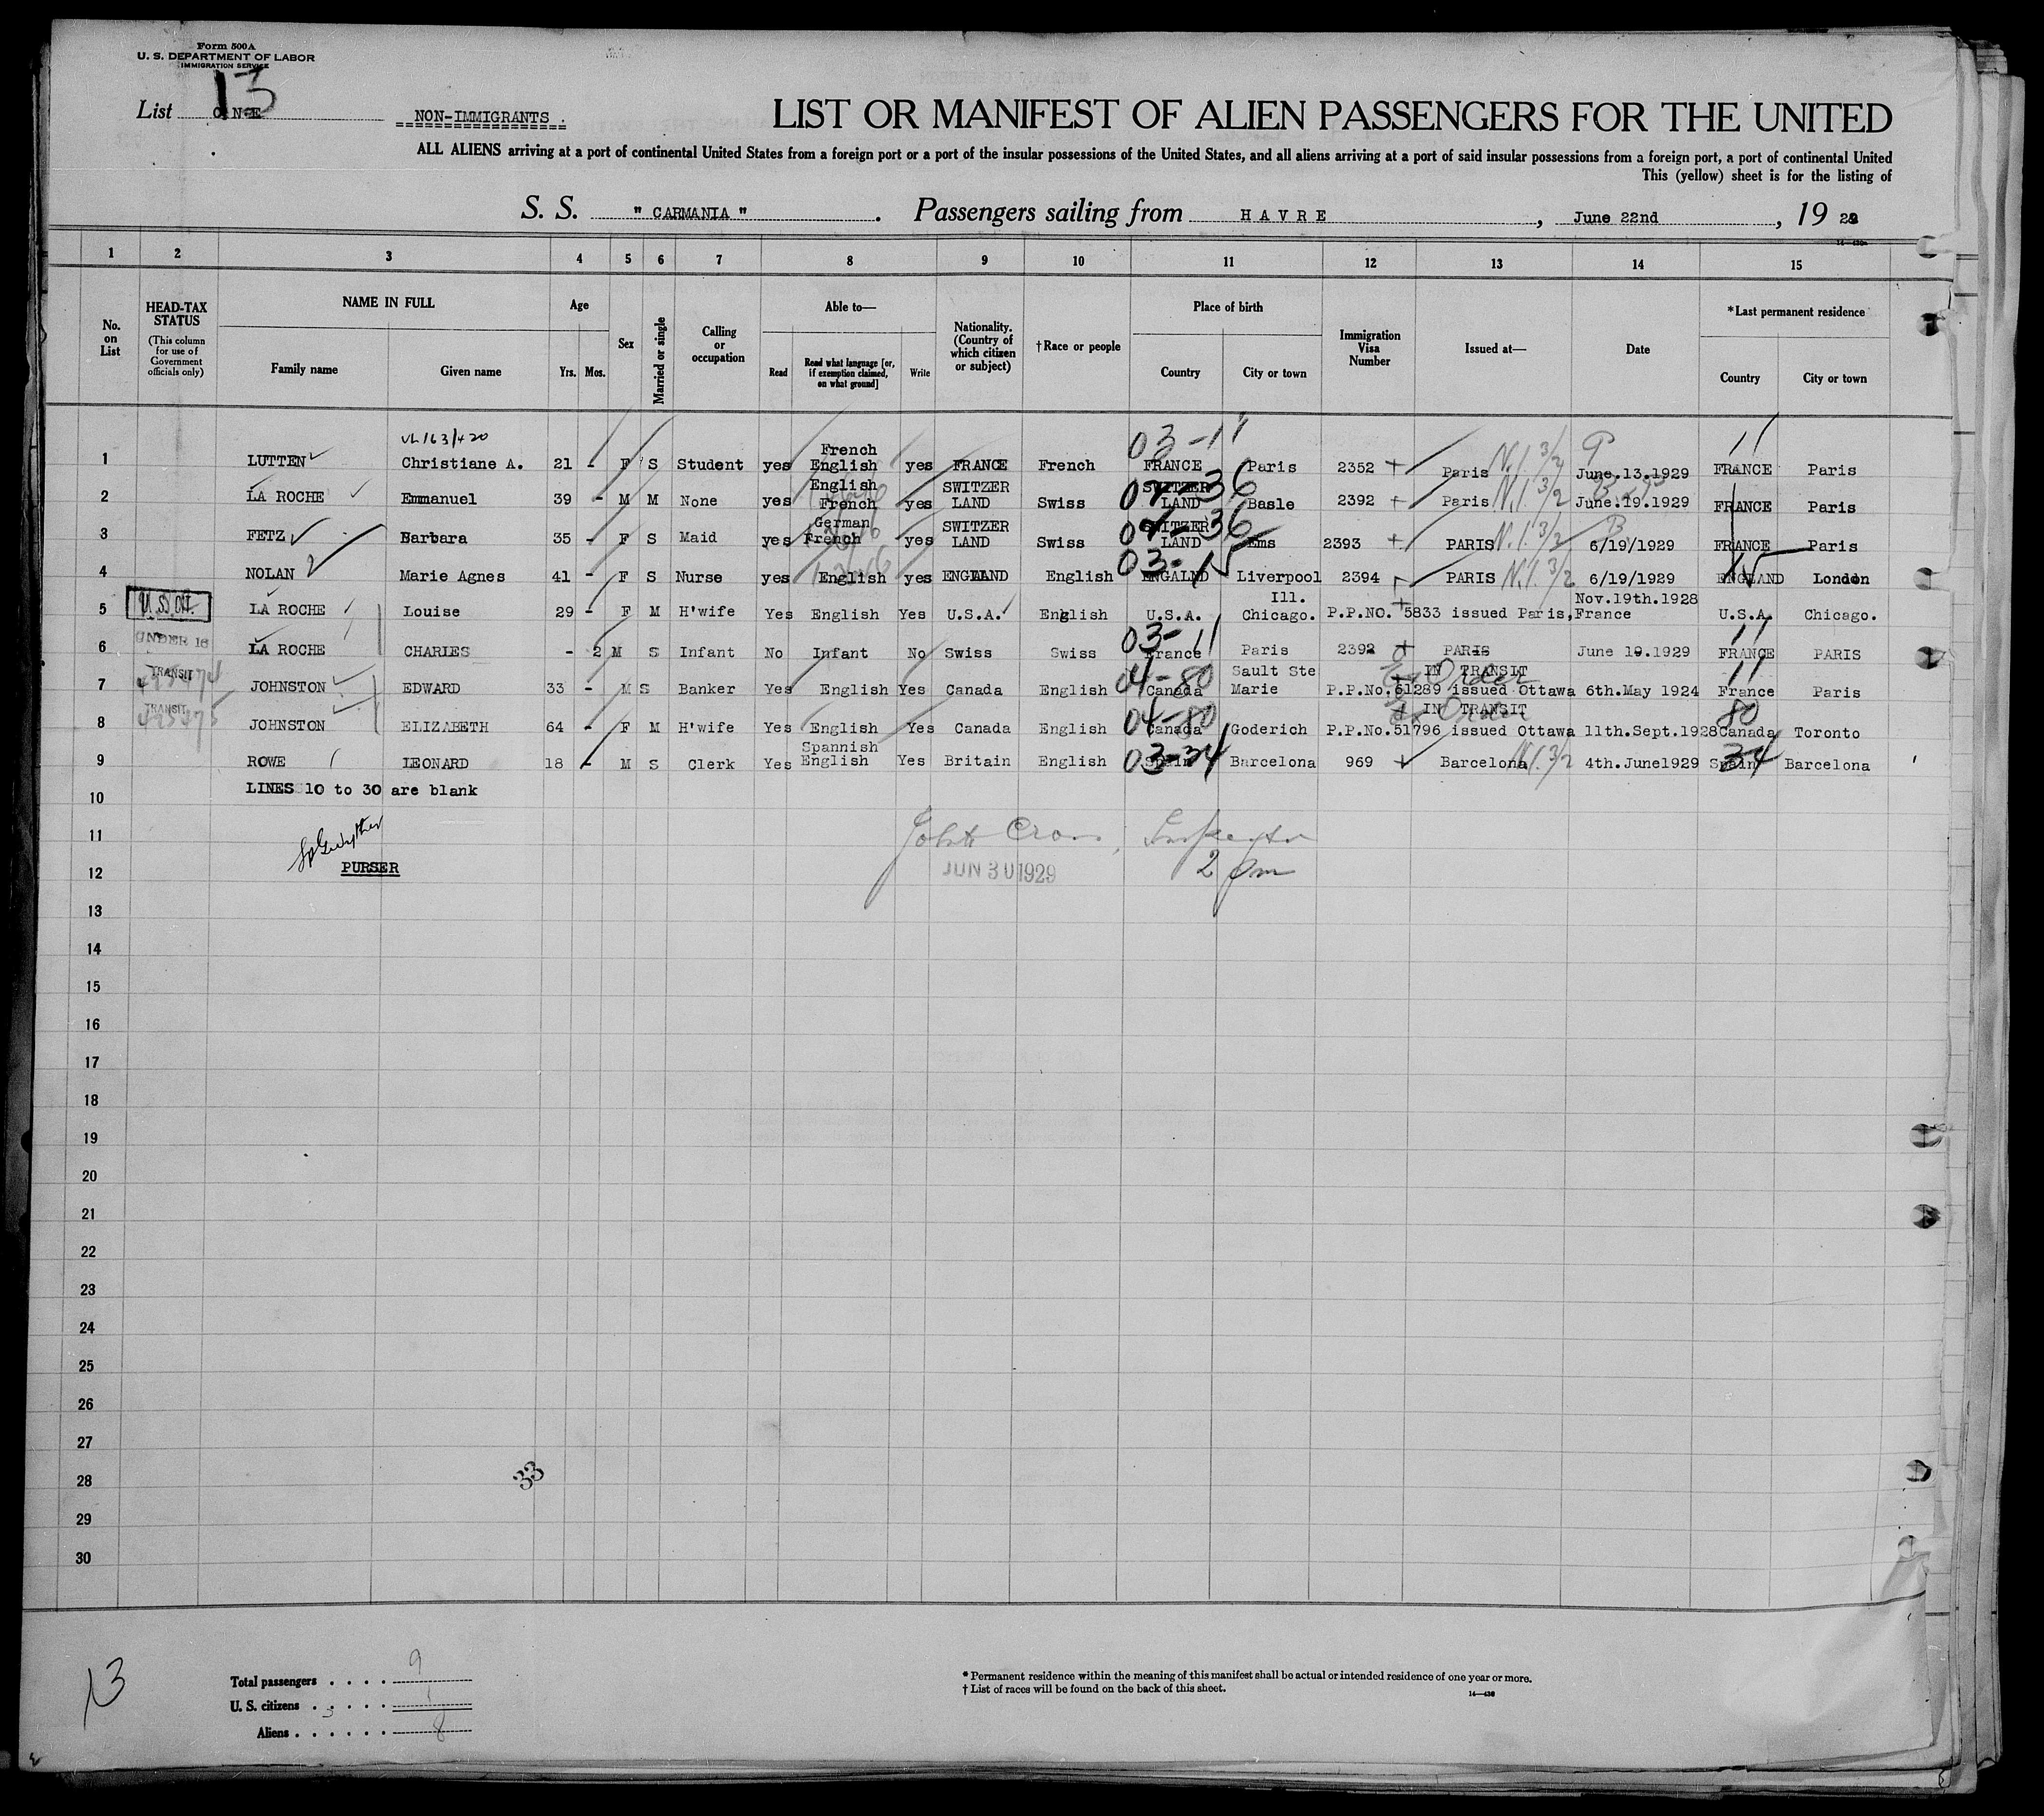 Form 500A
U. S. DEPARTMENT OF LABOR
IMMIGRATION SERVICE
13
List ONE
NON-IMMIGRANTS.
LIST OR MANIFEST OF ALIEN PASSENGERS FOR THE UNITED
ALL ALIENS arriving at a port of continental United States from a foreign port or a port of the insular possessions of the United States, and all aliens arriving at a port of said insular possessions from a foreign port, a port of continental United
This (yellow) sheet is for the listing of
S. S. " CARMANIA ". Passengers sailing from HAVRE, June 22nd, 19
1 2 3 4 5 6 7 8 9 10 11 12 13 14 15
No. on List
HEAD-TAX STATUS (This column for use of Government officials only)
NAME IN FULL Family name Given name
Age Yrs. Mos.
Sex
Married or single
Calling or occupation
Able to— Read Read what language [or, if exemption claimed, on what ground] Write
Nationality. (Country of which citizen or subject)
†Race or people
Place of birth Country City or town
Immigration Visa Number
Issued at—
Date
*Last permanent residence Country City or town
1 LUTTEN Christiane A. 21 - F S Student yes French English yes FRANCE French FRANCE 03-11 Paris 2352 Paris June.13.1929 FRANCE 11 Paris
2 LA ROCHE Emmanuel 39 - M M None yes English French yes SWITZER LAND Swiss SWITZER LAND Basle 2392 Paris June.19.1929 FRANCE Paris
3 FETZ Barbara 35 - F S Maid yes German French yes SWITZER LAND Swiss SWITZER LAND Ems 2393 PARIS 6/19/1929 FRANCE Paris
4 NOLAN Marie Agnes 41 - F S Nurse yes English yes ENGLAND English ENGALND Liverpool 2394 PARIS 6/19/1929 ENGLAND London
5 LA ROCHE Louise 29 - F M H'wife Yes English Yes U.S.A. English U.S.A. Ill. Chicago. P.P.NO. 5833 issued Paris,France Nov.19th.1928 U.S.A. Chicago.
UNDER 16
6 LA ROCHE CHARLES - 2 M S Infant No Infant No Swiss Swiss France 03-11 Paris 2392 PARIS June 19.1929 FRANCE 11 PARIS
TRANSIT
7 JOHNSTON EDWARD 33 - M S Banker Yes English Yes Canada English Canada 04-80 Sault Ste Marie P.P.No.61289 issued Ottawa IN TRANSIT 6th.May 1924 France 11 Paris
TRANSIT
8 JOHNSTON ELIZABETH 64 - F M H'wife Yes English Yes Canada English Canada 04-80 Goderich P.P.No.51796 issued Ottawa IN TRANSIT 11th.Sept.1928 Canada 80 Toronto
9 ROWE LEONARD 18 - M S Clerk Yes Spannish English Yes Britain English Spain 03-34 Barcelona 969 Barcelona 4th.June1929 Spain 34 Barcelona
10 LINES 10 to 30 are blank
11 Inspector
12 PURSER JUN 30 1929 2 pm
13
14
15
16
17
18
19
20
21
22
23
24
25
26
27
28 33
29
30
13
Total passengers 9
U. S. citizens 1
Aliens 8
* Permanent residence within the meaning of this manifest shall be actual or intended residence of one year or more.
† List of races will be found on the back of this sheet.